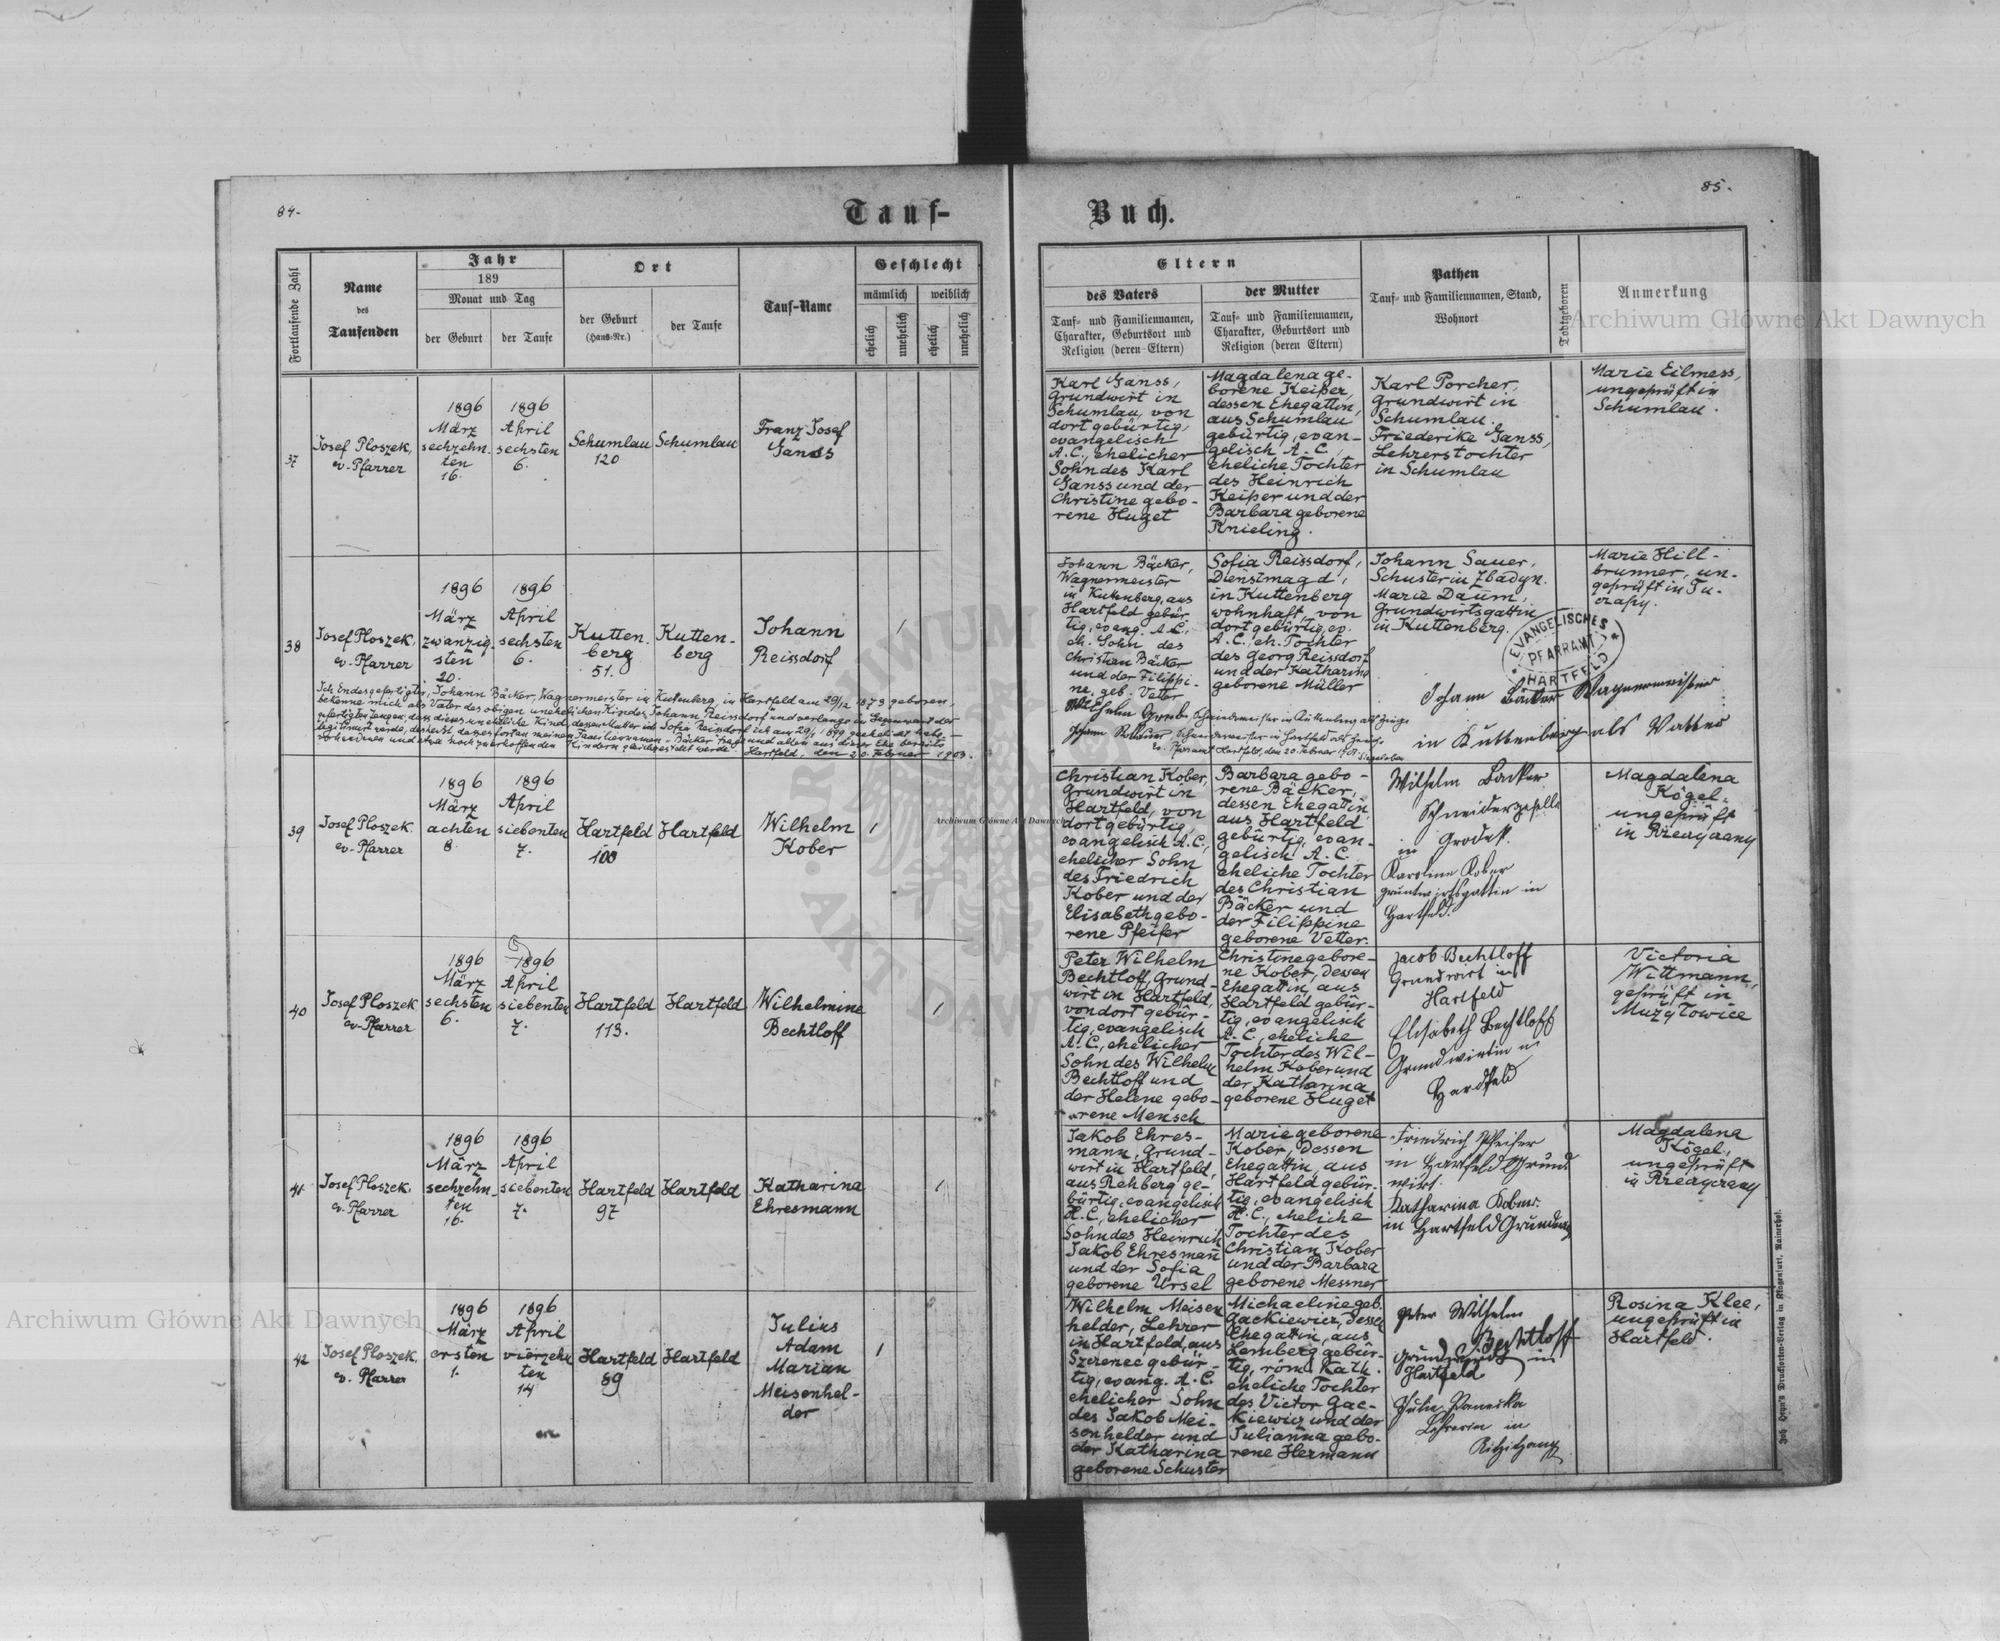 84.
Tauf-
Fortlaufende Zahl
Name
des
Taufenden
Jahr
189
Monat und Tag
der Geburt
der Taufe
Ort
der Geburt
(Haus-Nr.)
der Taufe
Tauf-Name
Geschlecht
männlich
weiblich
ehelich
unehelich
ehelich
unehelich
37
Josef Ploszek,
ev. Pfarrer
1896
März
sechzehn-
ten
16.
1896
April
sechsten
6.
Schumlau
120
Schumlau
Franz Josef
Ganss
38
Josef Ploszek,
ev. Pfarrer
1896
März
zwanzig-
sten
20.
1896
April
sechsten
6.
Kutten-
berg
51.
Kutten-
berg
Johann
Reissdorf
1
Ich Endesgefertigter, Johann Bäcker, Wagnermeister in Kuttenberg, in Hartfeld am 29/12 1873 geboren,
bekenne mich als Vater des obigen unehelichen Kindes, Johann Reissdorf und verlange in Gegenwart der
gefertigten Zeugen, dass dieses uneheliche Kind, dessen Mutter
Hartfeld, den 20. Februar 1903.
39
Josef Ploszek,
ev. Pfarrer
1896
März
achten
8.
1896
April
siebenten
7.
Hartfeld
100
Hartfeld
Wilhelm
Kober
1
40
Josef Ploszek
ev. Pfarrer
1896
März
sechsten
6.
1896
April
siebenten
7.
Hartfeld
113.
Hartfeld
Wilhelmine
Bechtloff
1
41
Josef Ploszek,
ev. Pfarrer
1896
März
sechzehn-
ten
16.
1896
April
siebenten
7.
Hartfeld
97
Hartfeld
Katharina
Ehresmann
1
42
Josef Ploszek,
ev. Pfarrer
1896
März
ersten
1.
1896
April
vierzehn
ten
14
Hartfeld
89
Hartfeld
Julius
Adam
Marian
Meisenhel-
der
1
85.
Buch.
Eltern
des Vaters
Tauf- und Familiennamen,
Charakter, Geburtsort und
Religion (deren Eltern)
der Mutter
Tauf- und Familiennamen,
Charakter, Geburtsort und
Religion (deren Eltern)
Pathen
Tauf- und Familiennamen, Stand,
Wohnort
Todtgeboren
Anmerkung
Karl Ganss,
Grundwirt in
Schumlau, von
dort gebürtig,
evangelisch
A.C., ehelicher
Sohn des Karl
Ganss und der
Christine gebo-
rene Huget
Magdalena ge-
borene Keiper,
dessen Ehegattin,
aus Schumlau
gebürtig, evan-
gelisch A.C.,
eheliche Tochter
des Heinrich
Keiper und der
Barbara geborene
Knieling.
Karl Porcher,
Grundwirt in
Schumlau.
Friederike Ganss,
Lehrerstochter
in Schumlau
Marie Eilmess,
ungeprüft in
Schumlau.
Johann Bäcker,
Wagnermeister
in Kuttenberg, aus
Hartfeld gebür-
tig, evang. A.C.,
eh. Sohn des
Christian Bäcker
und der Filippi-
ne, geb. Vetter
Sofia Reissdorf,
Dienstmagd,
in Kuttenberg
wohnhaft, von
dort gebürtig, ev.
A.C., eh. Tochter
des Georg Reissdorf
und der Katharina
geborene Müller
Johann Sauer,
Schuster in Zbadyn.
Marie Daum,
Grundwirtsgattin
in Kuttenberg.
Marie Hill-
brunner, un-
geprüft in Tu-
czapy.
EVANGELISCHES
PFARRAMT
HARTFELD
Johann Bäcker Wagnermeister
in Kuttenberg als Vatter
Christian Kober,
Grundwirt in
Hartfeld, von
dort gebürtig,
evangelisch A.C.,
ehelicher Sohn
des Friedrich
Kober und der
Elisabeth gebo-
rene Pfeifer
Barbara gebo-
rene Bäcker,
dessen Ehegattin,
aus Hartfeld
gebürtig, evan-
gelisch A.C.,
eheliche Tochter
des Christian
Bäcker und
der Filippine
geborene Vetter.
Wilhelm Bäcker
Schneidergeselle
in Grodek.
Karoline Kober
grundwirthsgattin in
Hartfeld.
Magdalena
Kögel,
ungeprüft
in Rzeczyczany
Peter Wilhelm
Bechtloff, Grund-
wirt in Hartfeld,
von dort gebür-
tig, evangelisch
A.C., ehelicher
Sohn des Wilhelm
Bechtloff und
der Helene gebo-
rene Mensch
Christine gebore-
ne Kober, dessen
Ehegattin, aus
Hartfeld gebür-
tig, evangelisch
A.C., eheliche
Tochter des Wil-
helm Kober und
der Katharina
geborene Huget
Jacob Bechtloff
Grundwirt in
Hartfeld
Elisabeth Bechtloff
Grundwirtin in
Hardfeld
Victoria
Wittmann,
geprüft in
Mużyłowice
Jakob Ehres-
mann, Grund-
wirt in Hartfeld,
aus Rehberg ge-
bürtig, evangelisch
H.C., ehelicher
Sohn des Heinrich
Jakob Ehresmann
und der Sofia
geborene Ursel
Marie geborene
Kober, dessen
Ehegattin, aus
Hartfeld gebür-
tig, evangelisch
A.C., eheliche
Tochter des
Christian Kober
und der Barbara
geborene Messner
Friedrich Pfeifer
in Hartfeld Grund
wirt.
Katharina Kober
in Hartfeld
Magdalena
Kögel,
ungeprüft
in Rzeczyczany
Wilhelm Meisen
helder, Lehrer
in Hartfeld, aus
Szerenec gebür-
tig, evang. A.C.
ehelicher Sohn
des Jakob Mei-
senhelder und
der Katharina
geborene Schuster
Michaeline geb.
Gackiewicz, dessen
Ehegattin, aus
Lemberg gebür-
tig, röm. Kath.
eheliche Tochter
des Victor Gac-
kiewicz und der
Julianna gebo-
rene Hermann
Peter Wilhelm
Bechtloff
Grundwirth in
Hartfeld
Lehrerin in
Rosina Klee,
ungeprüft in
Hartfeld.
Joh. Heyn's Drucksorten-Verlag in Klagenfurt, Rainerhof.
Archiwum Główne Akt Dawnych
Archiwum Główne Akt Dawnych
Archiwum Główne Akt Dawnych